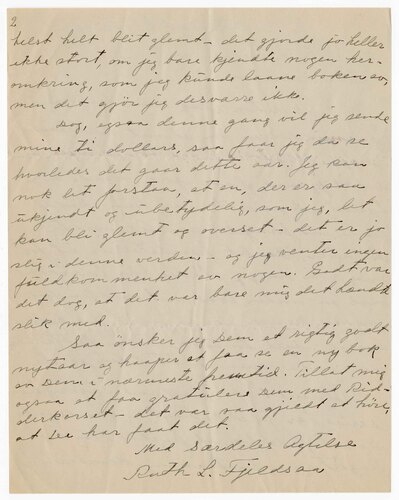 2.
helst helt blit glemt - det gjorde jo heller
ikke stort, om jeg bare kjendte nogen her-
omkring, som jeg kunde laane boken av,
men det gjør jeg desværre ikke.
Dog, ogsaa denne gang vil jeg sende
mine ti dollars, saa faar jeg da se
hvorledes det gaar dette aar. Jeg kan
nok let forstaa, at en, der er saa
ukjendt og ubetydelig, som jeg, let
kan bli glemt og overset - det er jo
slig i denne verden - og jeg venter ingen
fuldkommenhet av nogen. Godt var
det dog, at det var bare mig det hændte
slik med.
Saa ønsker jeg Dem et rigtig godt
nytaar og haaper at faa se en ny bok
av Dem i nærmeste fremtid. Tillat mig
ogsaa at faa gratulere Dem med Rid-
derkorset - det var saa gjildt at høre,
at De har faat det.
Med Særdeles Agtelse
Ruth L. Fjeldsaa